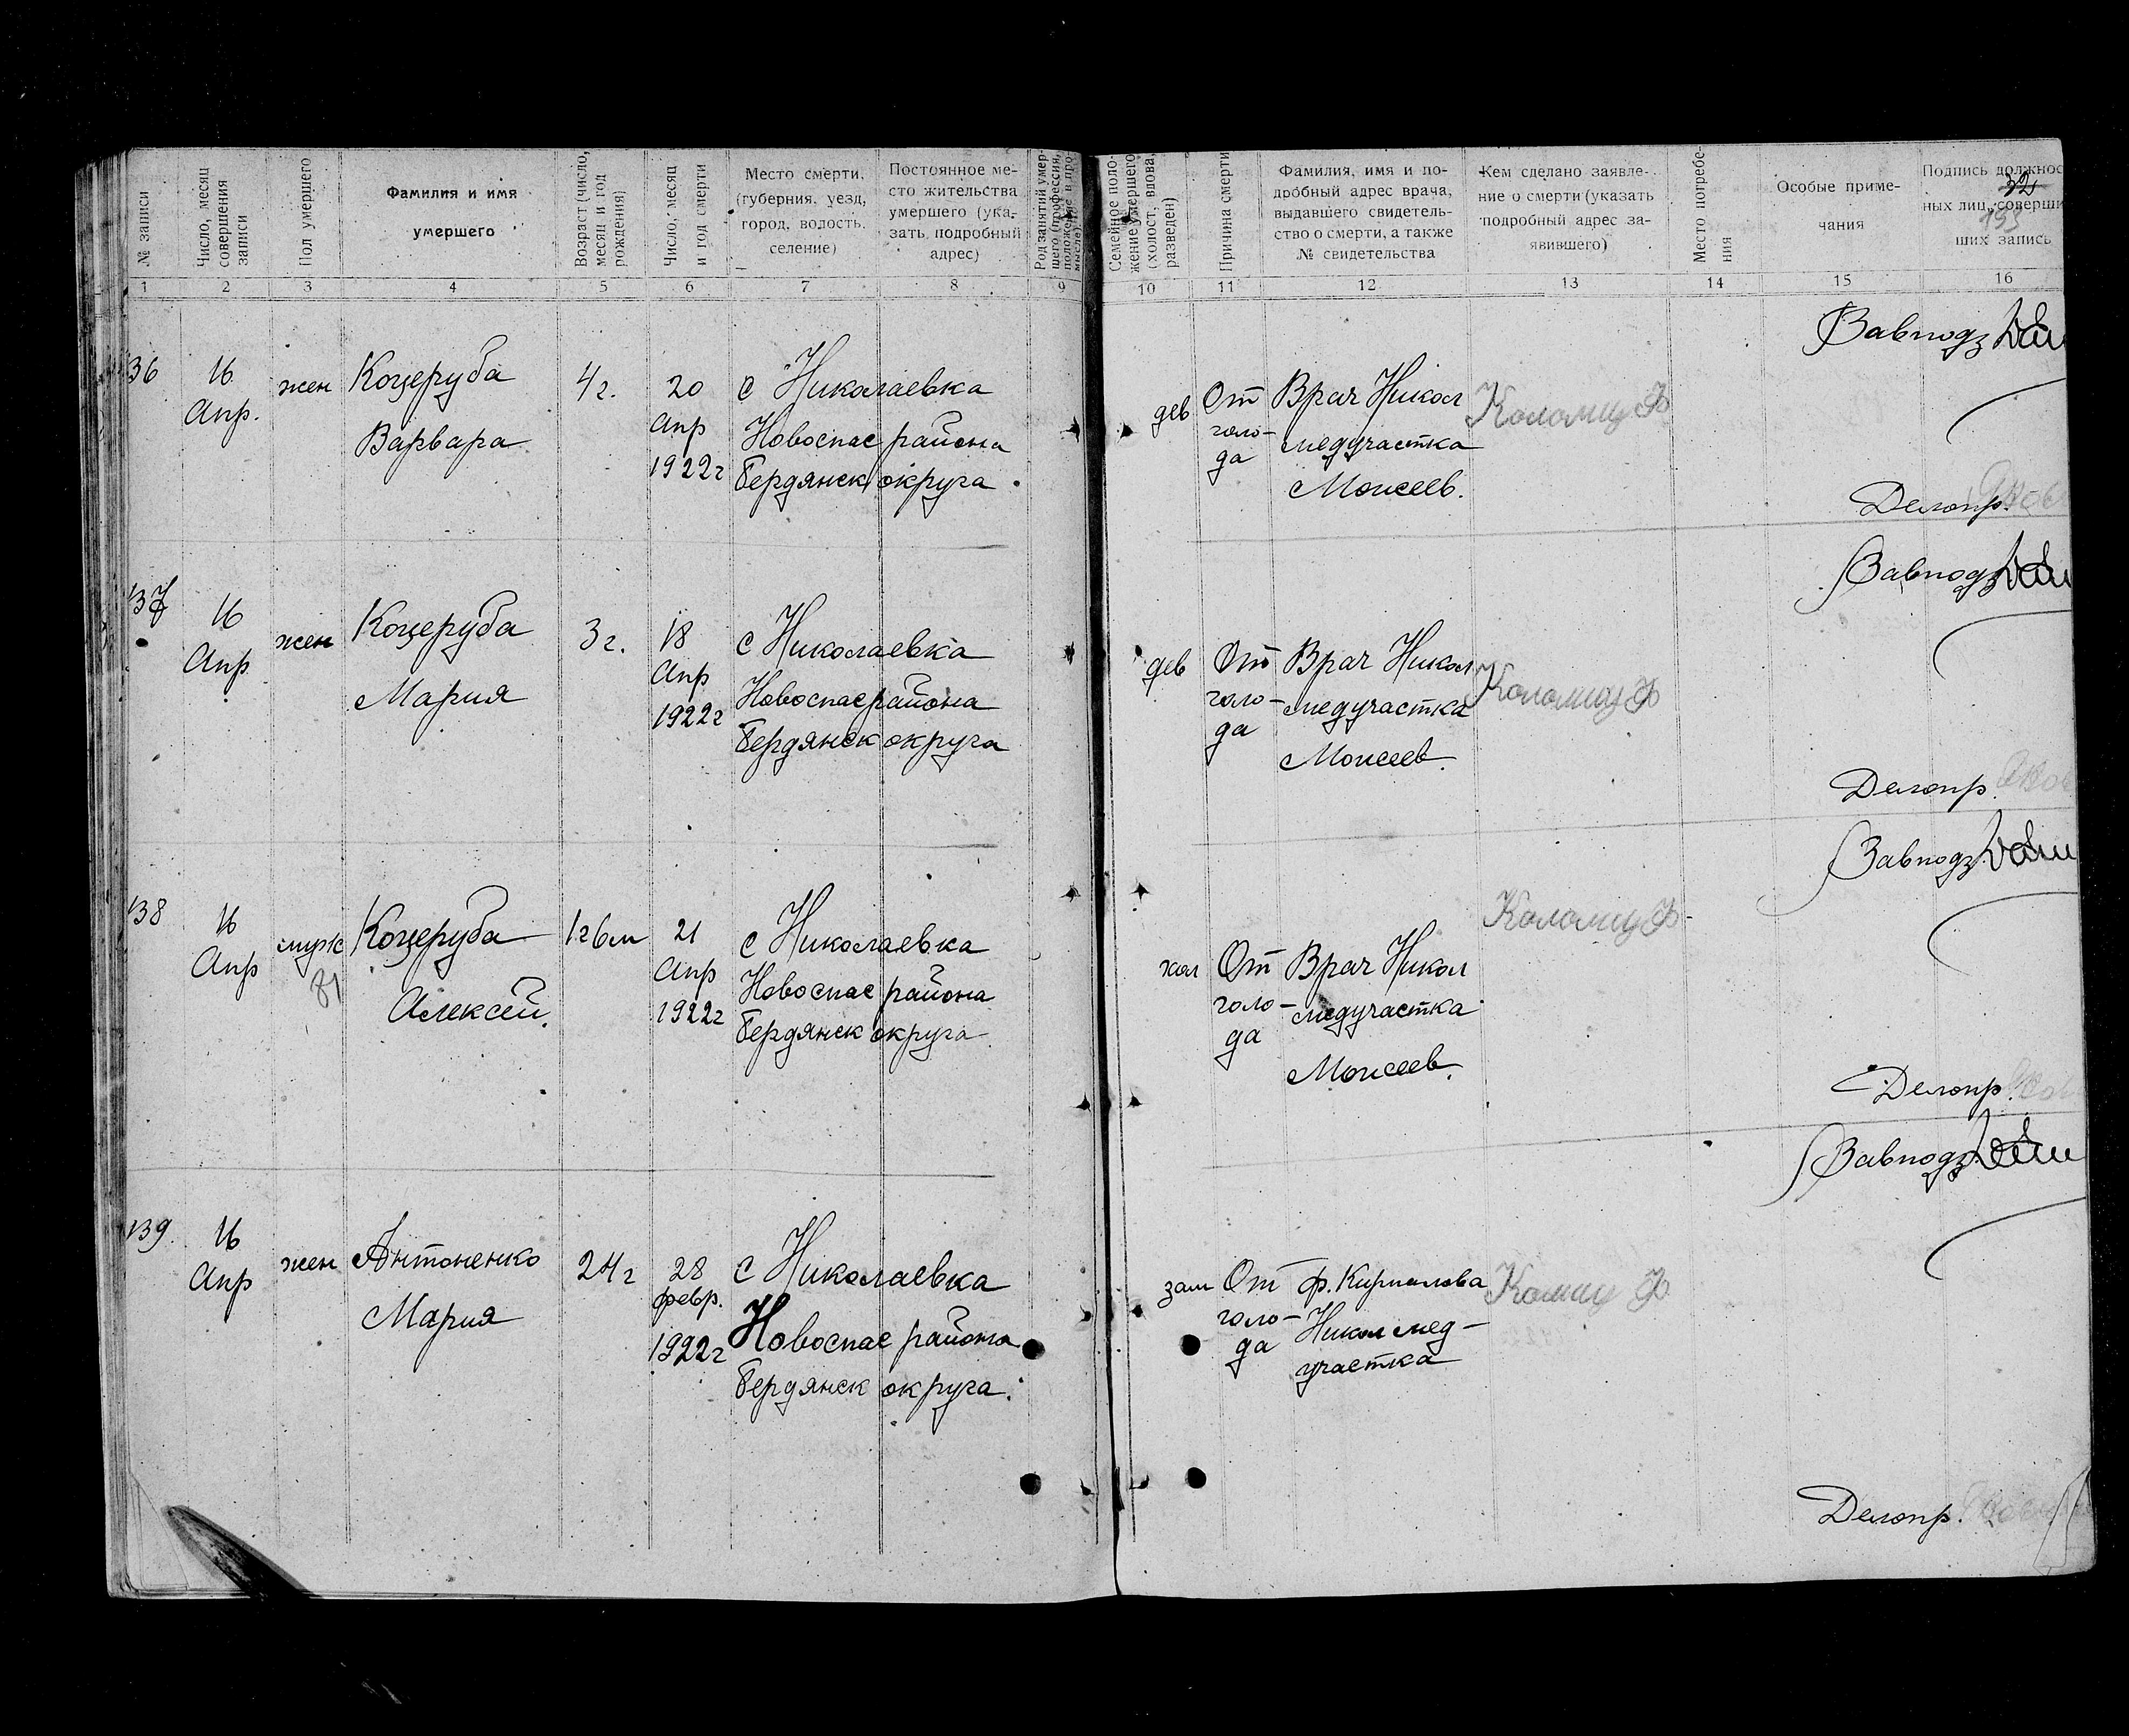 № записи
Число, месяц
совершения
записи
Пол умершего
Фамилия и имя
умершего
Возраст (число,
месяц и год
рождения)
Число, месяц
и год смерти
Место смерти.
(губерния, уезд,
город, волость,
селение)
Постоянное ме-
сто жительства
умершего (ука-
зать подробный
адрес)
Род занятий умер-
шего (профессия,
положение в про-
мысле)
Семейное поло-
жение умершего
(холост, вдова,
разведен)
Причина смерти
Фамилия, имя и по-
дробный адрес врача,
выдавшего свидетель-
ство о смерти, а также
№ свидетельства
Кем сделано заявле-
ние о смерти (указать
подробный адрес за-
явившего)
Место погребе-
ния
Особые приме-
чания
Подпись должнос
ных лиц, соверши
ших запись
1 2 3 4 5 6 7 8 9 10 11 12 13 14 15 16
136
16
Апр.
жен
Коцеруба
Варвара
4 г.
20
Апр
1922 г
с Николаевка
Новоспас района
Бердянск округа
дев
От
голо-
да
Врач Никол
медучастка
Моисеев.
Коломиец Ф
Завподз
Делопр.
137
16
Апр
жен
Коцеруба
Мария
3 г.
18
Апр
1922 г
с Николаевка
Новоспас района
Бердянск округа
дев
От
голо-
да
Врач Никол
медучастка
Моисеев.
Коломиец Ф
Завподз
Делопр.
138
16
Апр
муж
Коцеруба
Алексей.
1 г 6 м
21
Апр
1922 г
с Николаевка
Новоспас района
Бердянск округа
хол
От
голо-
да
Врач Никол
медучастка
Моисеев.
Коломиец Ф
Завподз
Делопр.
139.
16
Апр
жен
Антоненко
Мария
24 г
28
февр.
1922 г
с Николаевка
Новоспас района
Бердянск округа.
зам
От
голо-
да
Никол мед-
участка
Завподз
Делопр.